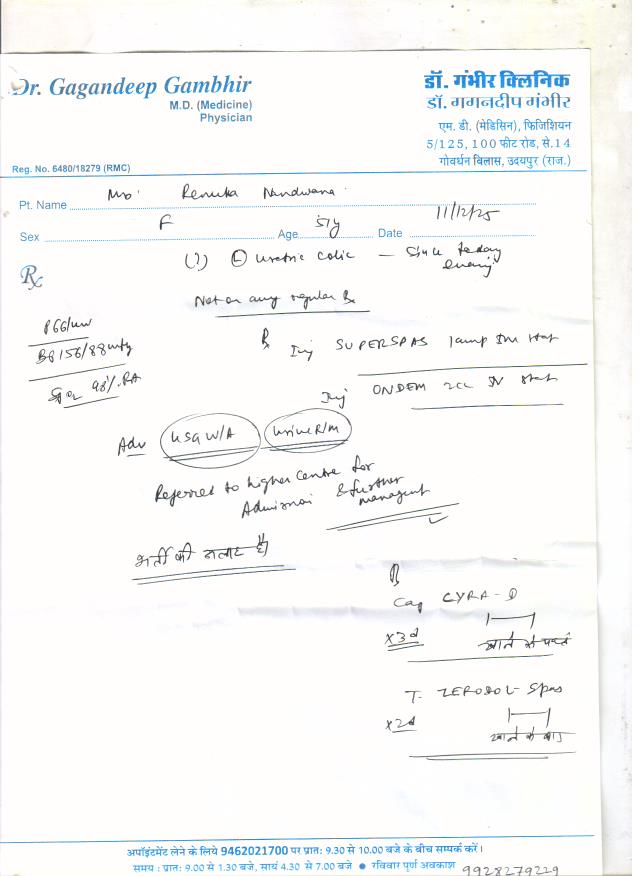 Dr. Gagandeep Gambhir
M.D. (Medicine)
Physician
Reg. No. 6480/18279 (RMC)
डॉ. गंभीर क्लिनिक
डॉ. गगनदीप गंभीर
एम. डी. (मेडिसिन), फिजिशियन
5/125, 100 फीट रोड, से.14
गोवर्धन विलास, उदयपुर (राज.)
Pt. Name Mrs. Renuka Nandwana
Sex F Age 51y Date 11/12/25
(?) (L) ureteric colic — since today
evening
Rx
Not on any regular Rx
P 66/min
BP 156/88 mmHg
SpO2 98%. RA
Rx Inj SUPERSPAS 1amp IM stat
Inj ONDEM 2cc IV stat
Adv USG W/A Urine R/M
Referred to higher Centre for
Admission & further
management
भर्ती की सलाह है
Rx
Cap CYRA-D
x3d खाने के पहले
T. ZERODOL-Spas
x2d खाने के बाद
अपॉइंटमेंट लेने के लिये 9462021700 पर प्रातः 9.30 से 10.00 बजे के बीच सम्पर्क करें।
समय : प्रातः 9.00 से 1.30 बजे, सायं 4.30 से 7.00 बजे ● रविवार पूर्ण अवकाश 9928279229